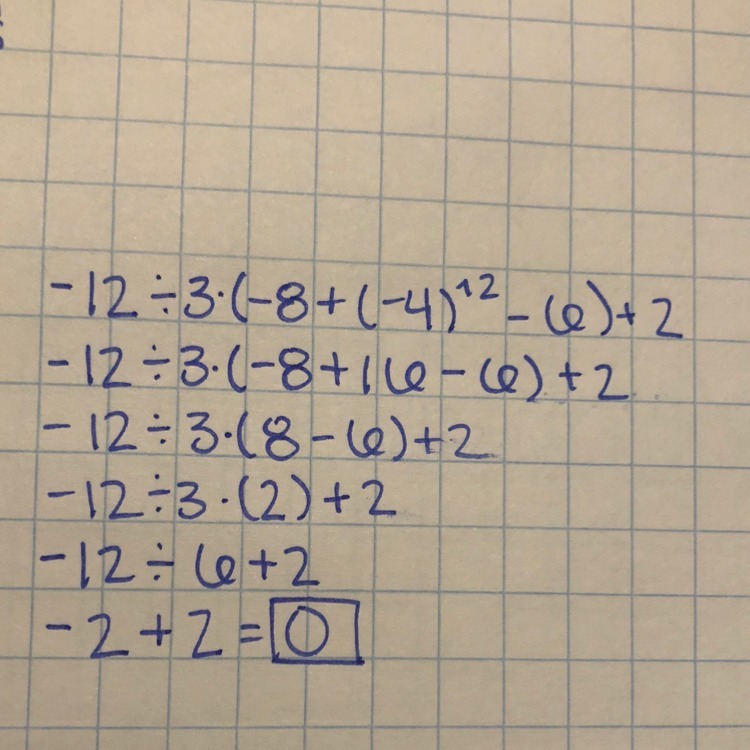 -12÷3·(-8+(-4)^2-6)+2
-12÷3·(-8+16-6)+2
-12÷3·(8-6)+2
-12÷3·(2)+2
-12÷6+2
-2+2=0